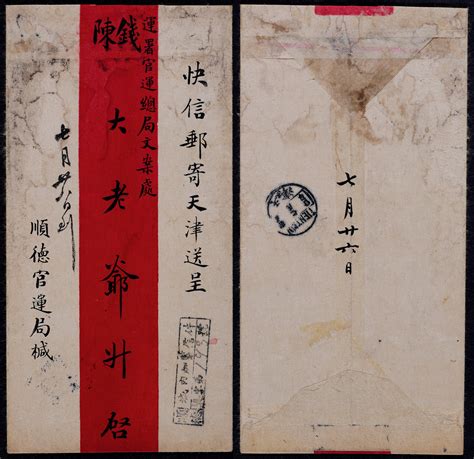 快信郵寄天津送呈
運署官運總局文案處
錢
陳
大老爺升啓
七月廿八日到
順德官運局槭
七月廿六日
TIENTSIN